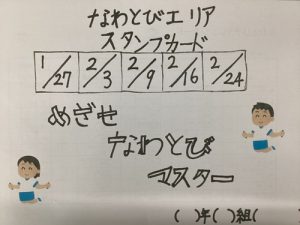 なわとびエリア
スタンプカード
1/27 2/3 2/9 2/16 2/24
めざせ
なわとび
マスター
( )年( )組(